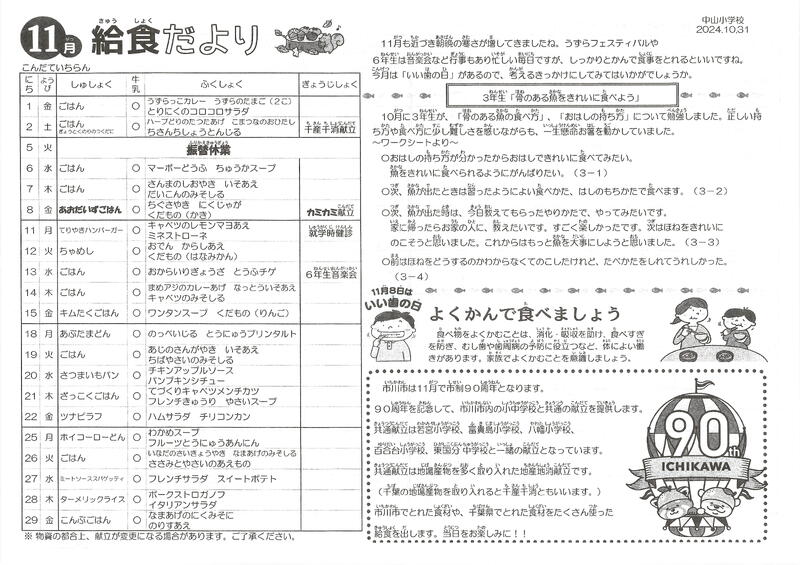 11月 給食だより
中山小学校
2024.10.31
こんだていちらん
にち ようび しゅしょく 牛乳 ふくしょく ぎょうじしょく
1 金 ごはん ○ うずらっこカレー うずらのたまご(2こ)
とりにくのコロコロサラダ
2 土 ごはん
ぎょうとくのりのつくだに ○ ハーブどりのたつたあげ こまつなのおひたし
ちさんちしょうとんじる 千産千消献立
5 火 振替休業
6 水 ごはん ○ マーボーどうふ ちゅうかスープ
7 木 ごはん ○ さんまのしおやき いそあえ
だいこんのみそしる
8 金 あおだいずごはん ○ ちぐさやき にくじゃが
くだもの(かき) カミカミ献立
11 月 てりやきハンバーガー ○ キャベツのレモンマヨあえ
ミネストローネ 就学時健診
12 火 ちゃめし ○ おでん からしあえ
くだもの(はなみかん)
13 水 ごはん ○ おからいりぎょうざ とうふチゲ 6年生音楽会
14 木 ごはん ○ まめアジのカレーあげ なっとういそあえ
キャベツのみそしる
15 金 キムたくごはん ○ ワンタンスープ くだもの(りんご)
18 月 あぶたまどん ○ のっぺいじる とうにゅうプリンタルト
19 火 ごはん ○ あじのさんがやき いそあえ
ちばやさいのみそしる
20 水 さつまいもパン ○ チキンアップルソース
パンプキンシチュー
21 木 ざっこくごはん ○ てづくりキャベツメンチカツ
フレンチきゅうり やさいスープ
22 金 ツナピラフ ○ ハムサラダ チリコンカン
25 月 ホイコーローどん ○ わかめスープ
フルーツとうにゅうあんにん
26 火 ごはん ○ いなだのさいきょうやき なまあげのみそしる
ささみとやさいのあえもの
27 水 ミートソーススパゲッティ ○ フレンチサラダ スイートポテト
28 木 ターメリックライス ○ ポークストロガノフ
イタリアンサラダ
29 金 こんぶごはん ○ なまあげのにくみそに
のりすあえ
※ 物資の都合上、献立が変更になる場合があります。ご了承ください。
11月も近づき朝晩の寒さが増してきましたね。うずらフェスティバルや
6年生は音楽会など行事もあり忙しい毎日ですが、しっかりとかんで食事をとれるといいですね。
今月は「いい歯の日」があるので、考えるきっかけにしてみてはいかがでしょうか。
3年生「骨のある魚をきれいに食べよう」
10月に3年生が、「骨のある魚の食べ方」、「おはしの持ち方」について勉強しました。正しい持
ち方や食べ方に少し難しさを感じながらも、一生懸命お箸を動かしていました。
~ワークシートより~
○おはしの持ち方が分かったからおはしできれいに食べてみたい。
魚をきれいに食べられるようにがんばりたい。(3-1)
○次、魚が出たときは習ったようによい食べかた、はしのもちかたで食べます。(3-2)
○次、魚が出た時は、今日教えてもらったやりかたで、やってみたいです。
家に帰ったらお家の人に、教えたいです。すごく楽しかったです。次はほねをきれいに
のこそうと思いました。これからはもっと魚を大事にしようと思いました。(3-3)
○前はほねをどうするのかわからなくてのこしたけれど、たべかたをしれてうれしかった。
(3-4)
11月8日は
いい歯の日
よくかんで食べましょう
食べ物をよくかむことは、消化・吸収を助け、食べすぎ
を防ぎ、むし歯や歯周病の予防に役立つなど、体によい働
きがあります。家族でよくかむことを意識しましょう。
市川市は11月で市制90周年となります。
90周年を記念して、市川市内の小中学校と共通の献立を提供します。
共通献立は若宮小学校、富貴島小学校、八幡小学校、
百合台小学校、東国分中学校と一緒の献立となっています。
共通献立は地場産物を多く取り入れた地産地消献立です。
(千葉の地場産物を取り入れると千産千消ともいいます。)
市川市でとれた食材や、千葉県でとれた食材をたくさん使った
給食を出します。当日をお楽しみに!!
90th
ICHIKAWA